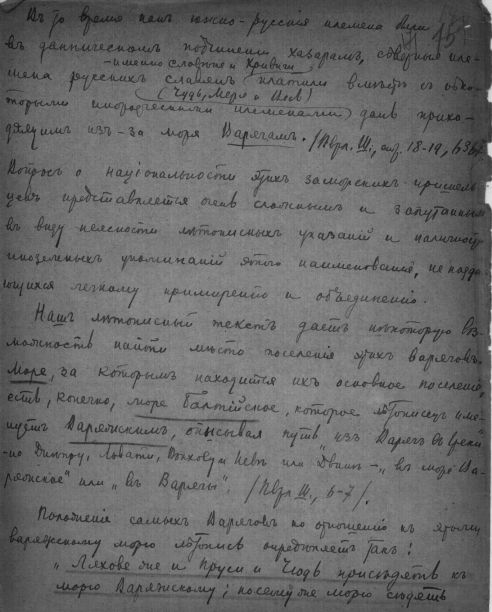 Въ то время какъ южно-русскія племена были
въ данническомъ подчиненіи хазарамъ, сѣверныя пле-
- именно словѣне и Кривичи -
мена русскихъ славянъ платили вмѣстѣ съ нѣко-
(Чудь, Меря и Весь)
торыми инородческими племенами дань прихо-
дящимъ изъ-за моря Варягамъ. (Ипат. III, стр. 18-19,
Вопросъ о національности этихъ заморскихъ пришель-
цевъ представляется очень сложнымъ и запутаннымъ
въ виду неясности лѣтописныхъ указаній и наличности
иноземныхъ упоминаній этого наименованія, не подда-
ющихся легкому примиренію и объединенію.
Нашъ лѣтописный текстъ даетъ нѣкоторую воз-
можность найти мѣсто поселенія этихъ варяговъ.
Море, за которымъ находится ихъ основное поселеніе,
есть, конечно, море Балтійское, которое лѣтописецъ име-
нуетъ Варяжскимъ, описывая путь "изъ Варягъ въ Греки"
по Днѣпру, Ловати, Волхову и Невѣ или Двинѣ - "въ море Ва-
ряжское" или "въ Варяги". III, 6-7).
Положенія самыхъ Варяговъ по отношенію къ этому
варяжскому морю лѣтопись опредѣляетъ такъ:
"Ляхове же и Пруси и Чюдь присѣдятъ къ
морю Варяжскому; по сему же морю сѣдятъ